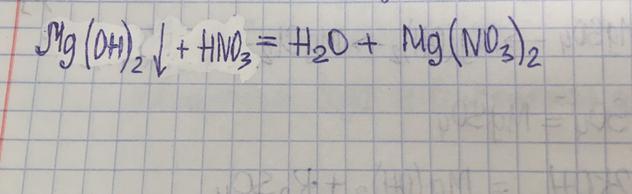 Mg(OH)₂↓ + HNO₃ = H₂O + Mg(NO₃)₂